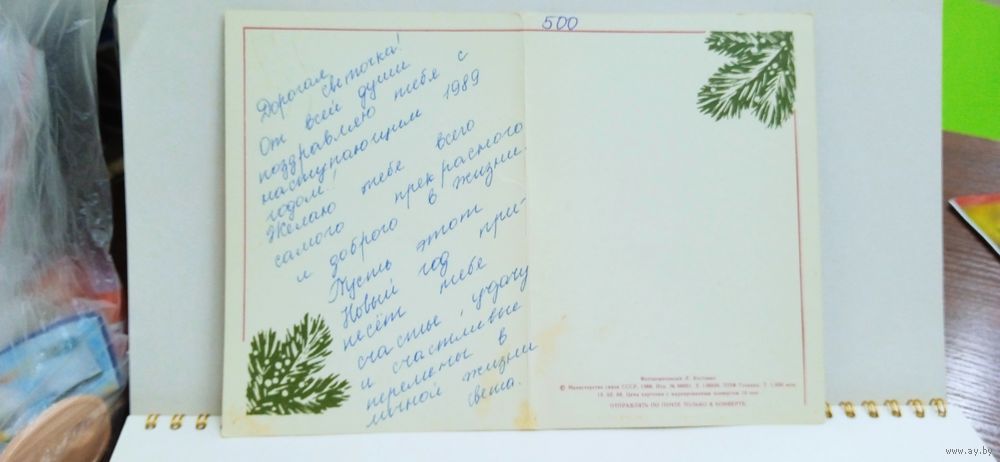 500
Дорогая
Светочка!
От всей души
поздравляю тебя с
наступающим 1989
годом!
Желаю тебе всего
самого прекрасного
и доброго в жизни.
Пусть этот
Новый год при-
несёт тебе
счастье, удачу
и счастливые
перемены в
личной жизни
Света.
© Министерство связи СССР, 1988.
ОТПРАВЛЯТЬ ПО ПОЧТЕ ТОЛЬКО В КОНВЕРТЕ.
www.ay.by